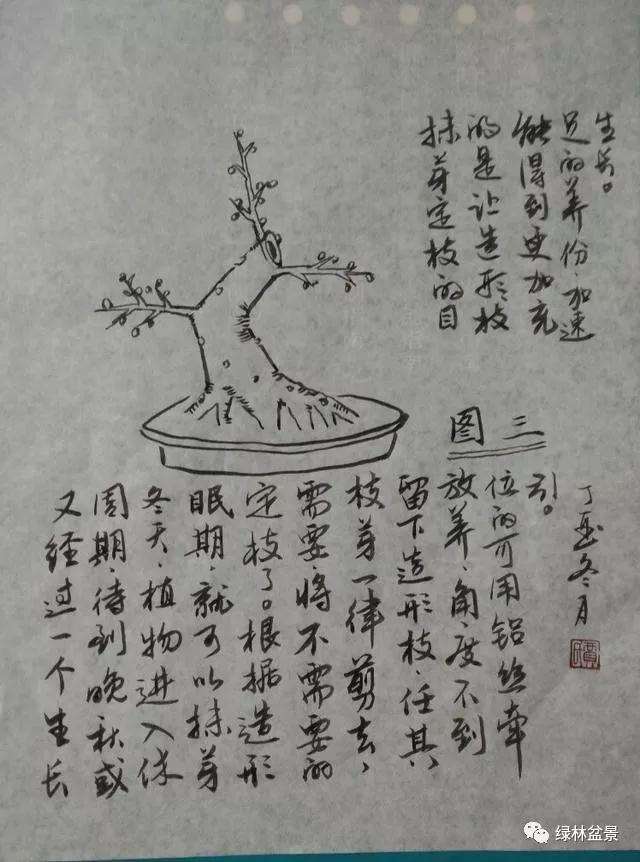 抹芽定枝的目
的是让造形枝
能得到更加充
足的养份，加速
生长。
图三
又经过一个生长
周期，待到晚秋或
冬天，植物进入休
眠期，就可以抹芽
定枝了。根据造形
需要，将不需要的
枝芽一律剪去，
留下造形枝，任其
放养，角度不到
位的可用铝丝牵
引。
丁酉冬月
绿林盆景